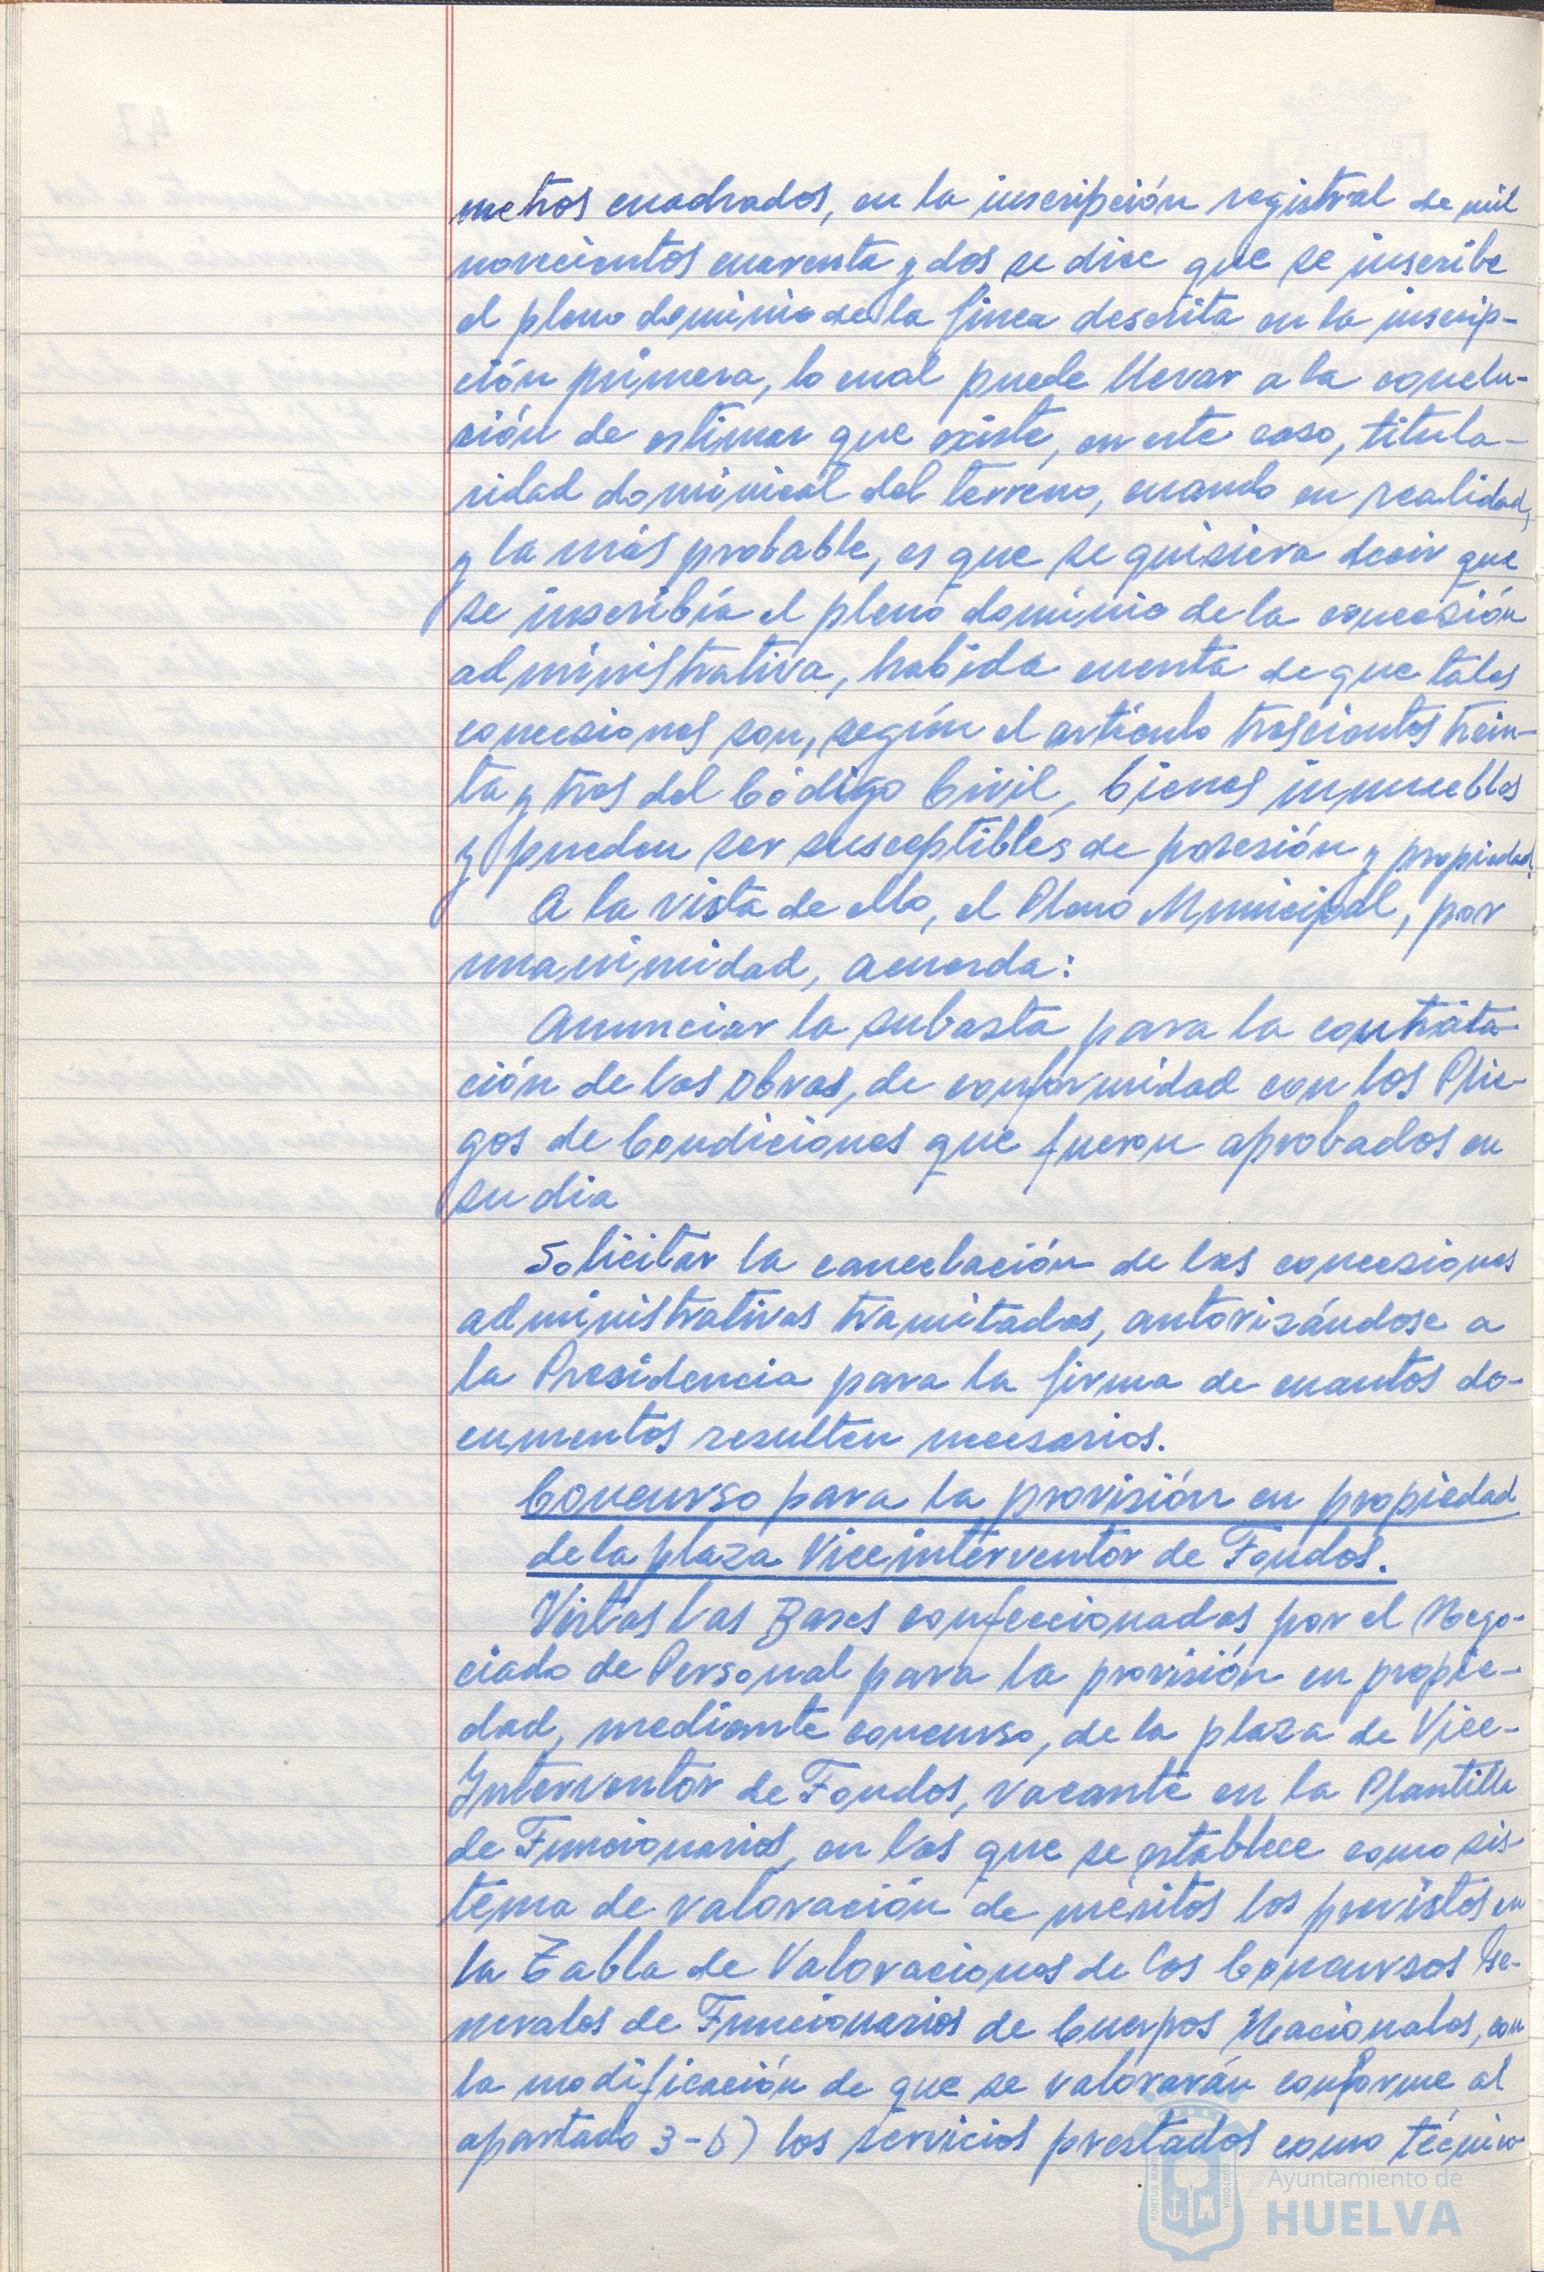 metros cuadrados, en la inscripción registral de mil
novecientos cuarenta y dos se dice que se inscribe
el pleno dominio de la finca descrita en la inscrip-
ción primera, lo cual puede llevar a la conclu-
sión de estimar que existe, en este caso, titula-
ridad dominical del terreno, cuando en realidad,
y la más probable, es que se quisiera decir que
se inscribía el pleno dominio de la concesión
administrativa, habida cuenta de que tales
concesiones son, según el artículo trescientos trein-
ta y tres del Código Civil, bienes inmuebles
y pueden ser susceptibles de posesión y propiedad.
A la vista de ello, el Pleno Municipal, por
unanimidad, acuerda:
Anunciar la subasta para la contrata-
ción de las obras, de conformidad con los Plie-
gos de Condiciones que fueron aprobados en
su dia
Solicitar la cancelación de las concesiones
administrativas tramitadas, autorizándose a
la Presidencia para la firma de cuantos do-
cumentos resulten necesarios.
Concurso para la provisión en propiedad
de la plaza Viceinterventor de Fondos.
Vistas las Bases confeccionadas por el Nego-
ciado de Personal para la provisión en propie-
dad, mediante concurso, de la plaza de Vice-
Interventor de Fondos, vacante en la Plantilla
de Funcionarios, en las que se establece como sis-
tema de valoración de méritos los previstos en
la Tabla de Valoraciones de los Concursos Ge-
nerales de Funcionarios de Cuerpos Nacionales, con
la modificación de que se valorarán conforme al
apartado 3-b) los servicios prestados como técnico
Ayuntamiento de
HUELVA